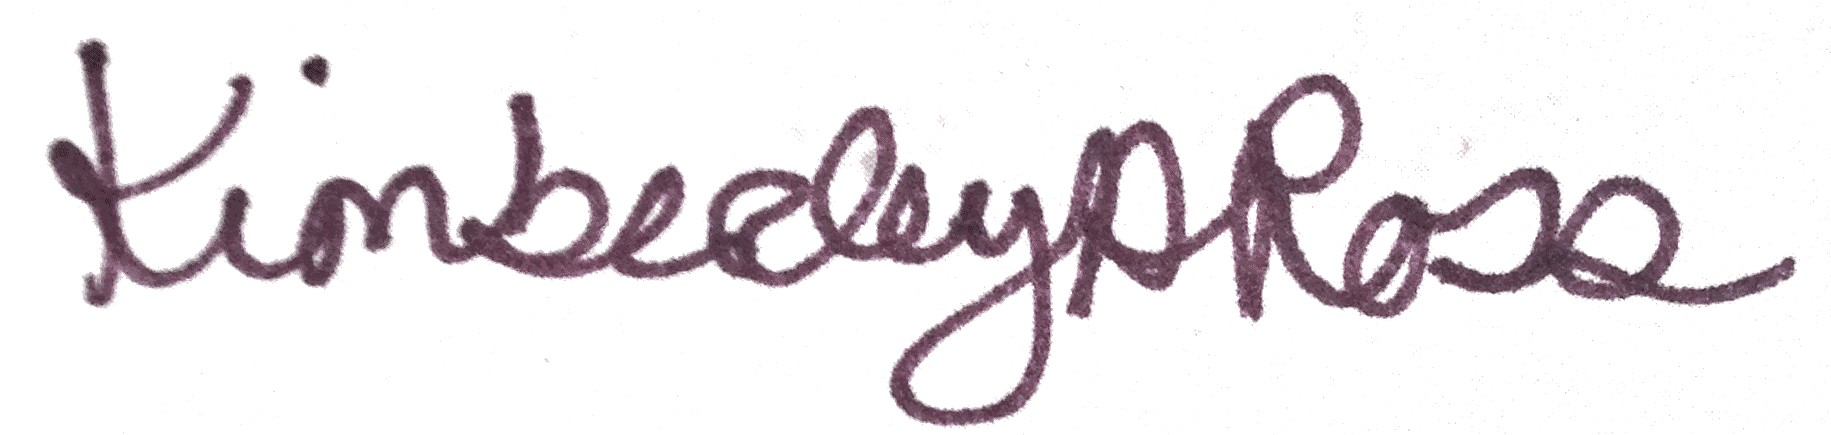 Kimberley D Ross